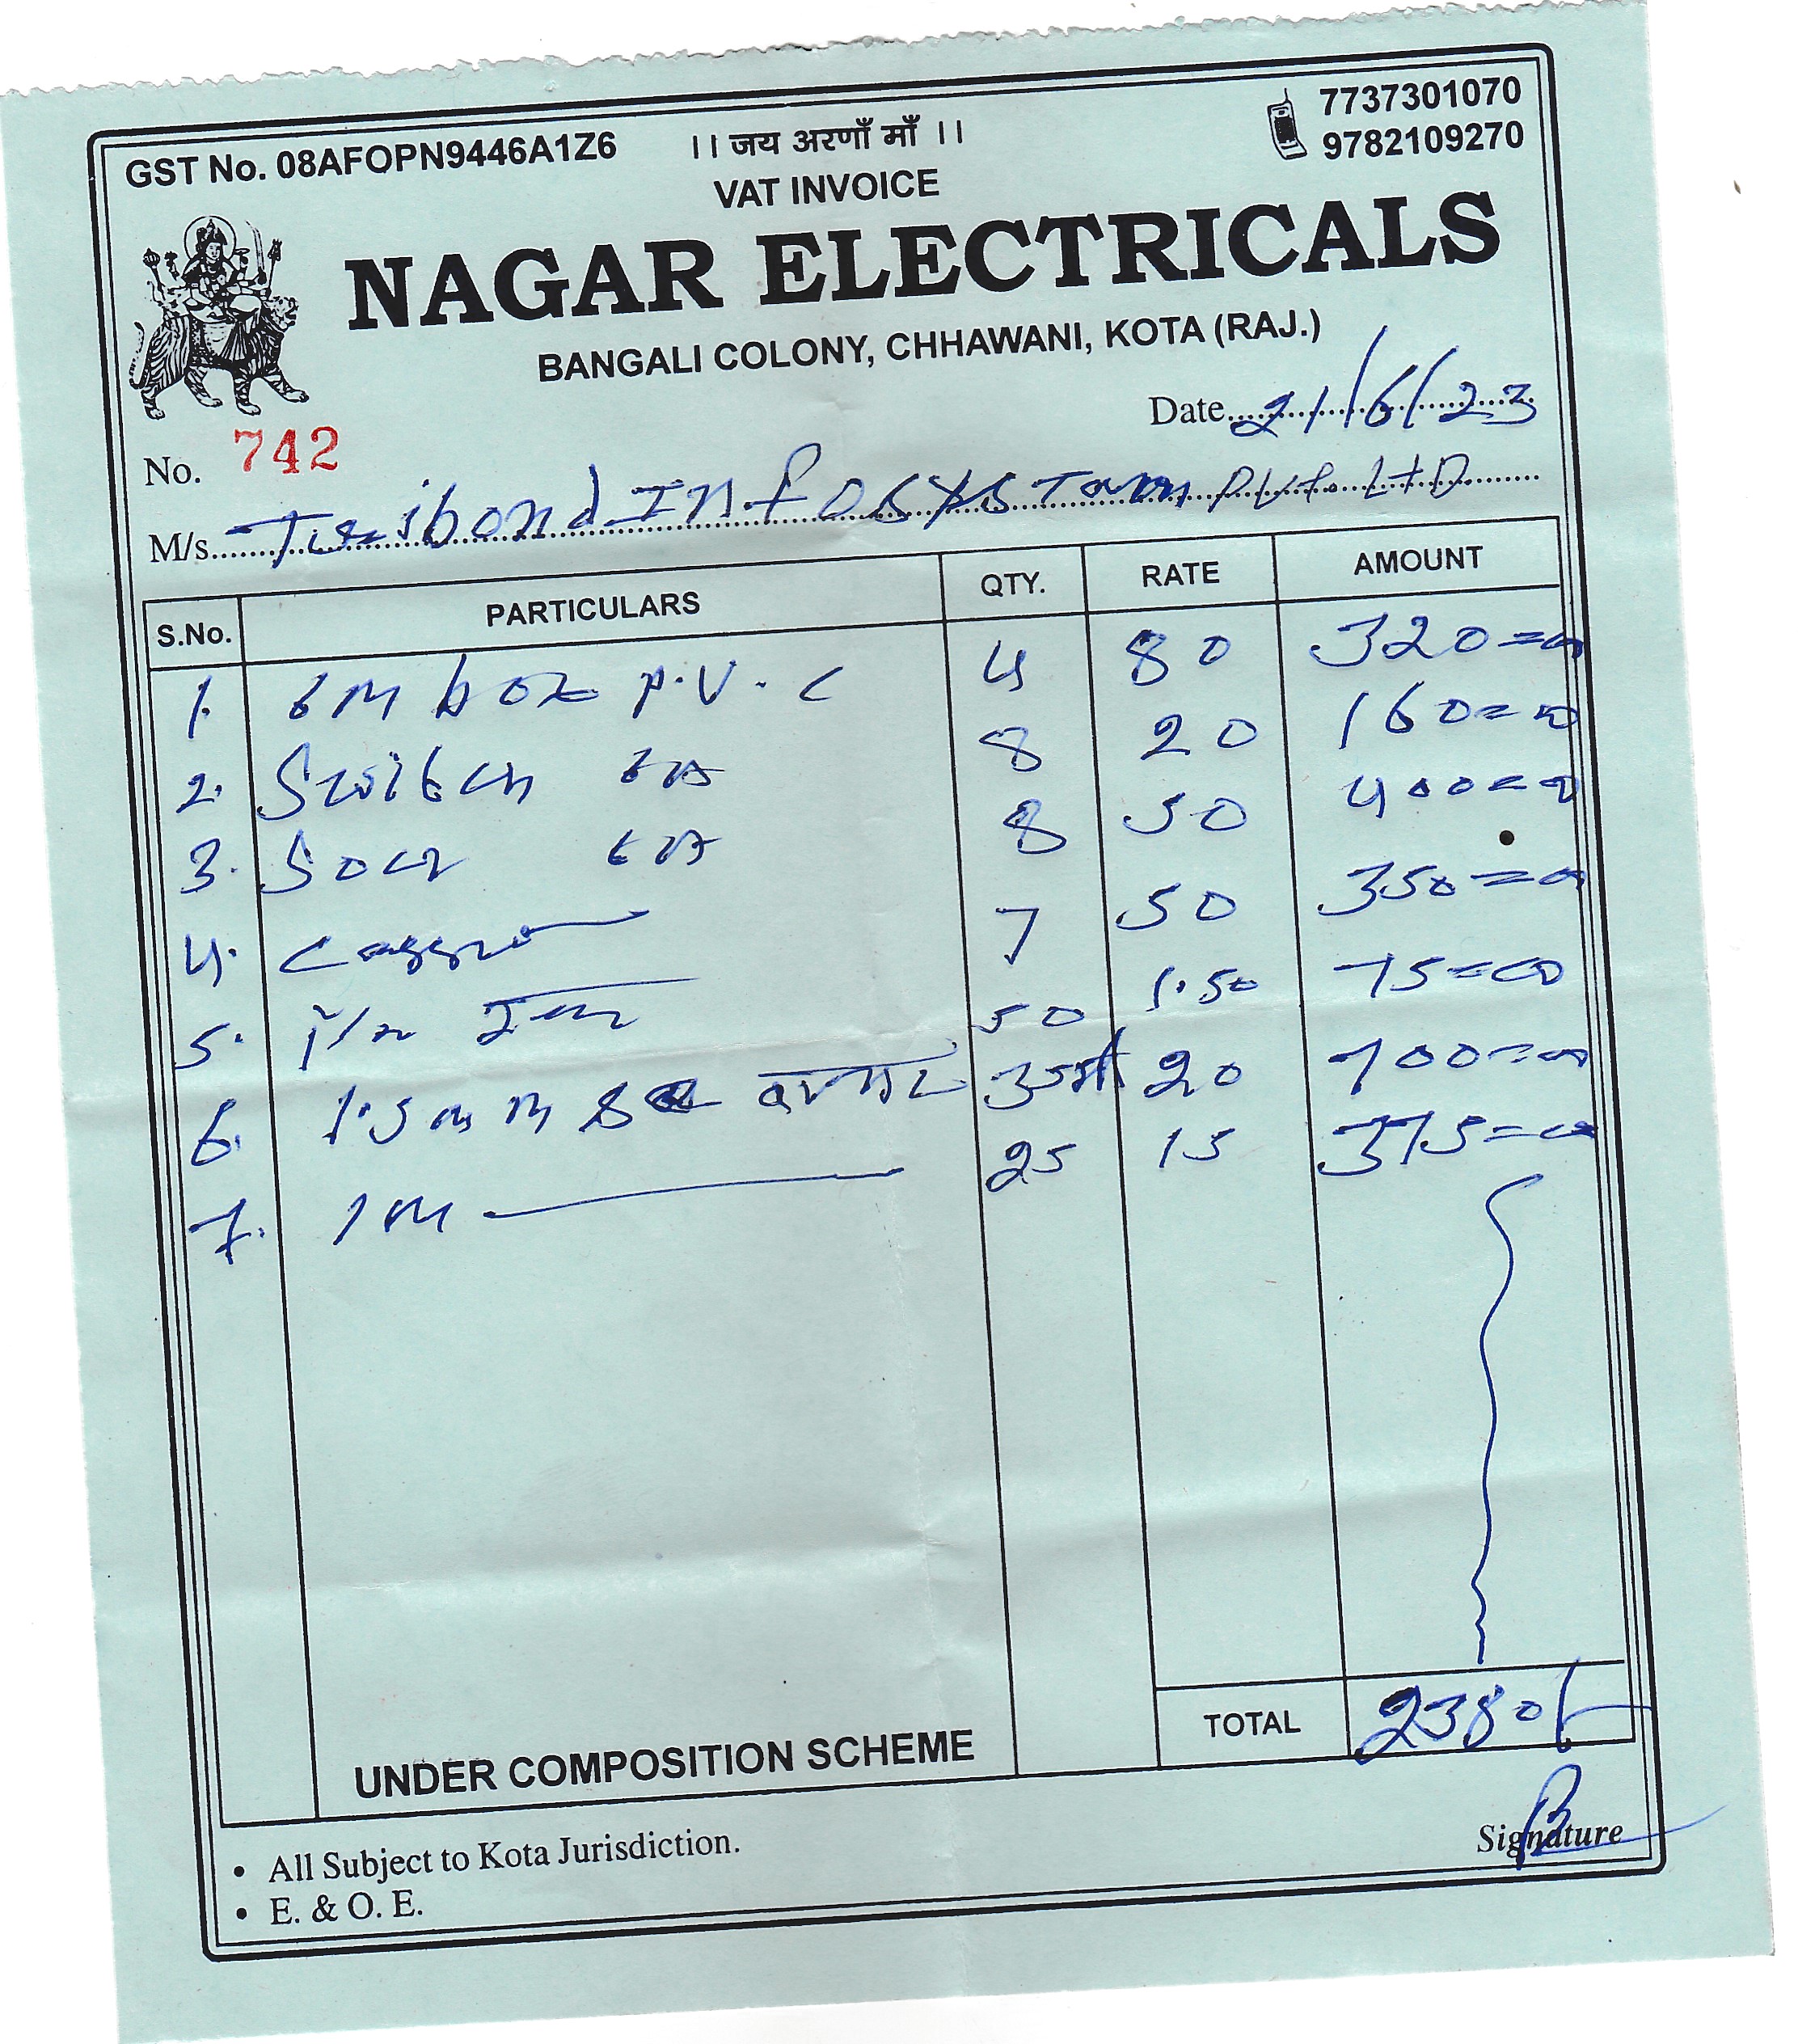 7737301070
GST No. 08AFOPN9446A1Z6 ।। जय अरणाँ माँ ।। 9782109270
VAT INVOICE
NAGAR ELECTRICALS
BANGALI COLONY, CHHAWANI, KOTA (RAJ.)
Date 21/6/23
No. 742
M/s. Infosystam Pvt. LTD
S.No. PARTICULARS QTY. RATE AMOUNT
1. 6M box P.V.C 4 80 320=00
2. Switch 6A 8 20 160=00
3. 6A 8 50 400=00
4. 7 50 350=00
5. 50 1.50 75=00
6. 1.5mm 35 20 700=00
7. 1M 25 15 375=00
TOTAL 2380/-
UNDER COMPOSITION SCHEME
Signature
• All Subject to Kota Jurisdiction.
• E. & O. E.